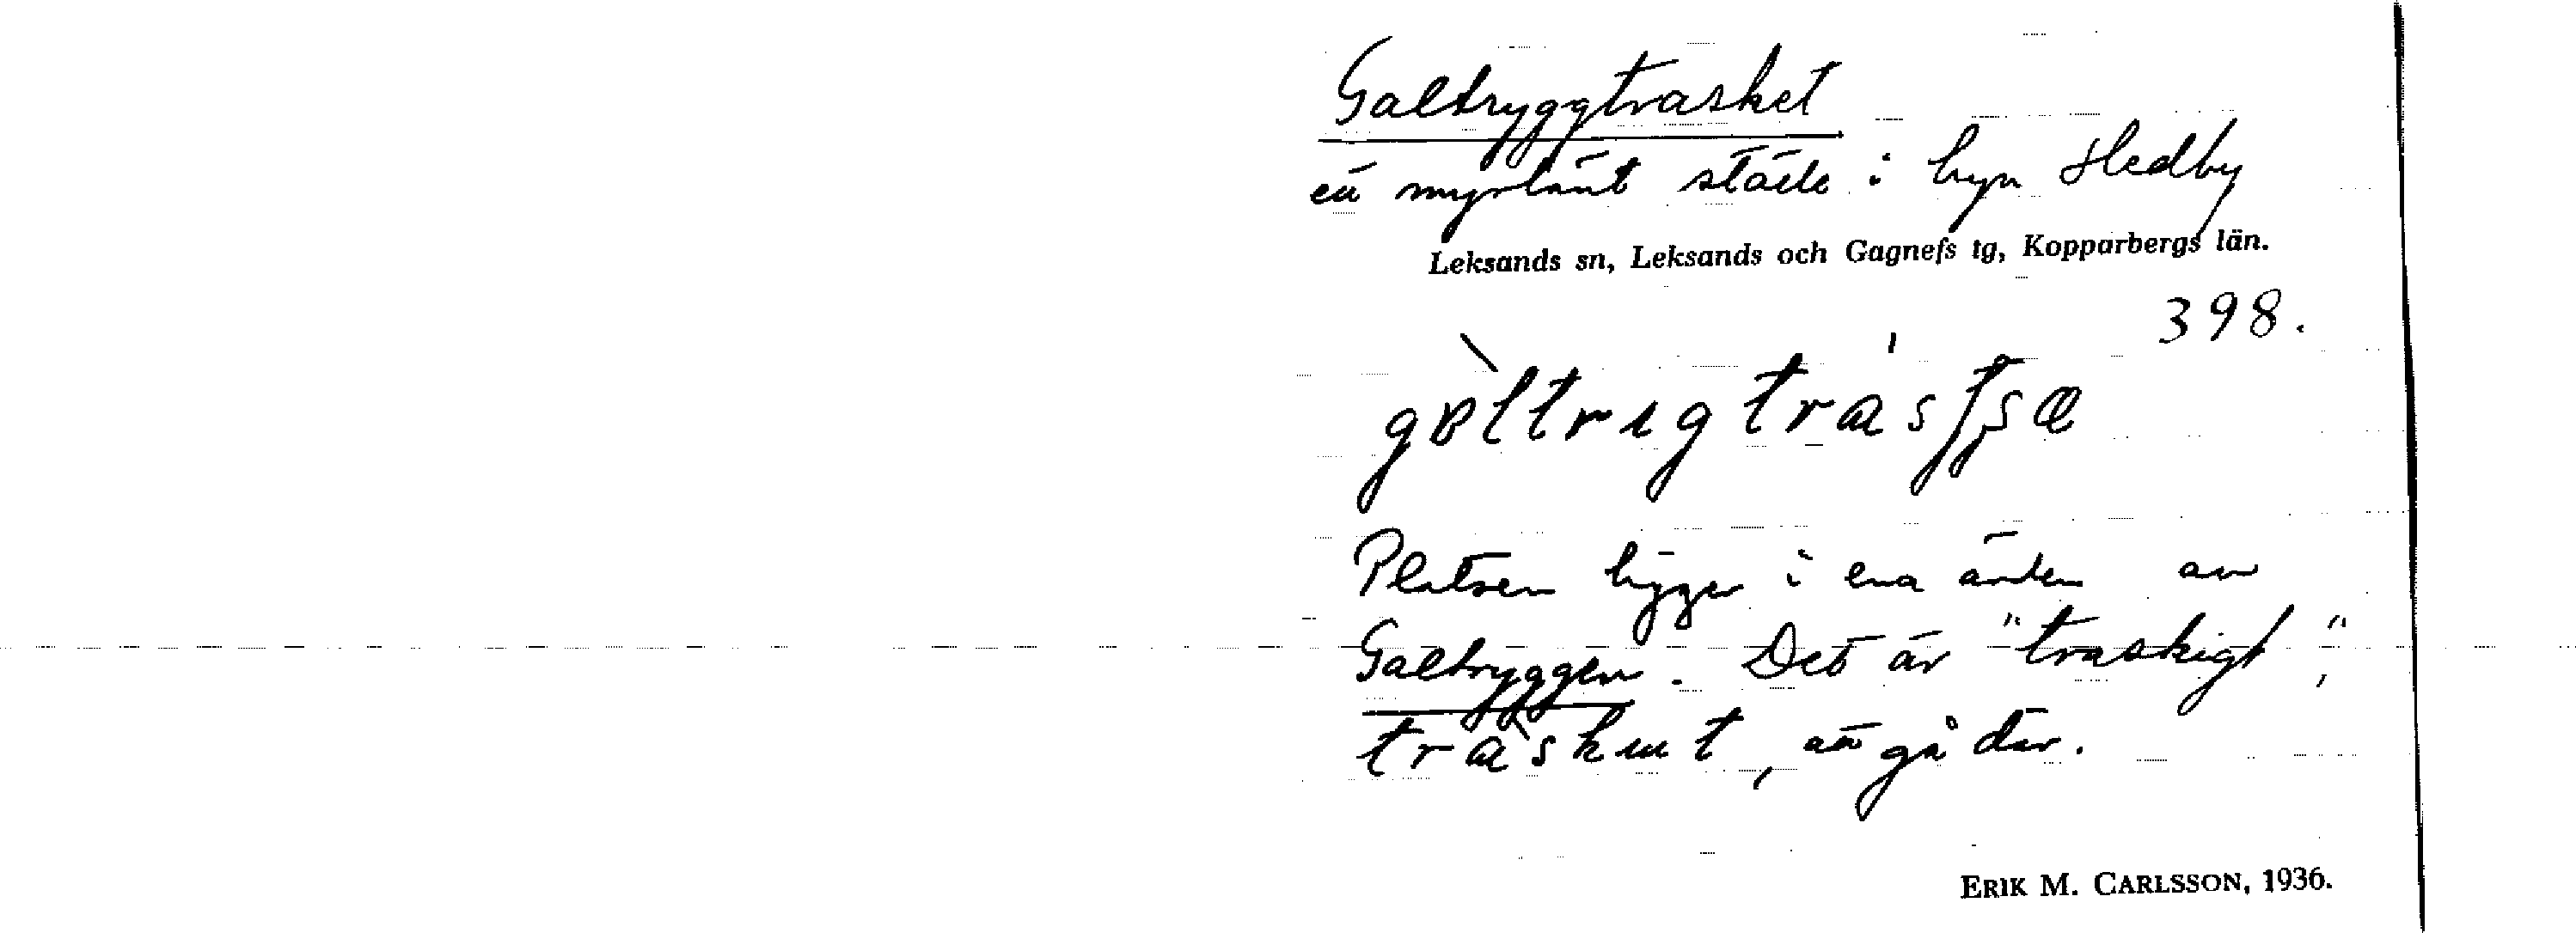 Galtryggtrasket
ett myrlänt ställe i byn Hedby
Leksands sn, Leksands och Gagnefs tg, Kopparbergs län.
398.
Platsen ligger i ena änden av
Galtryggen. Det är "traskigt",
att gå där.
ERIK M. CARLSSON, 1936.